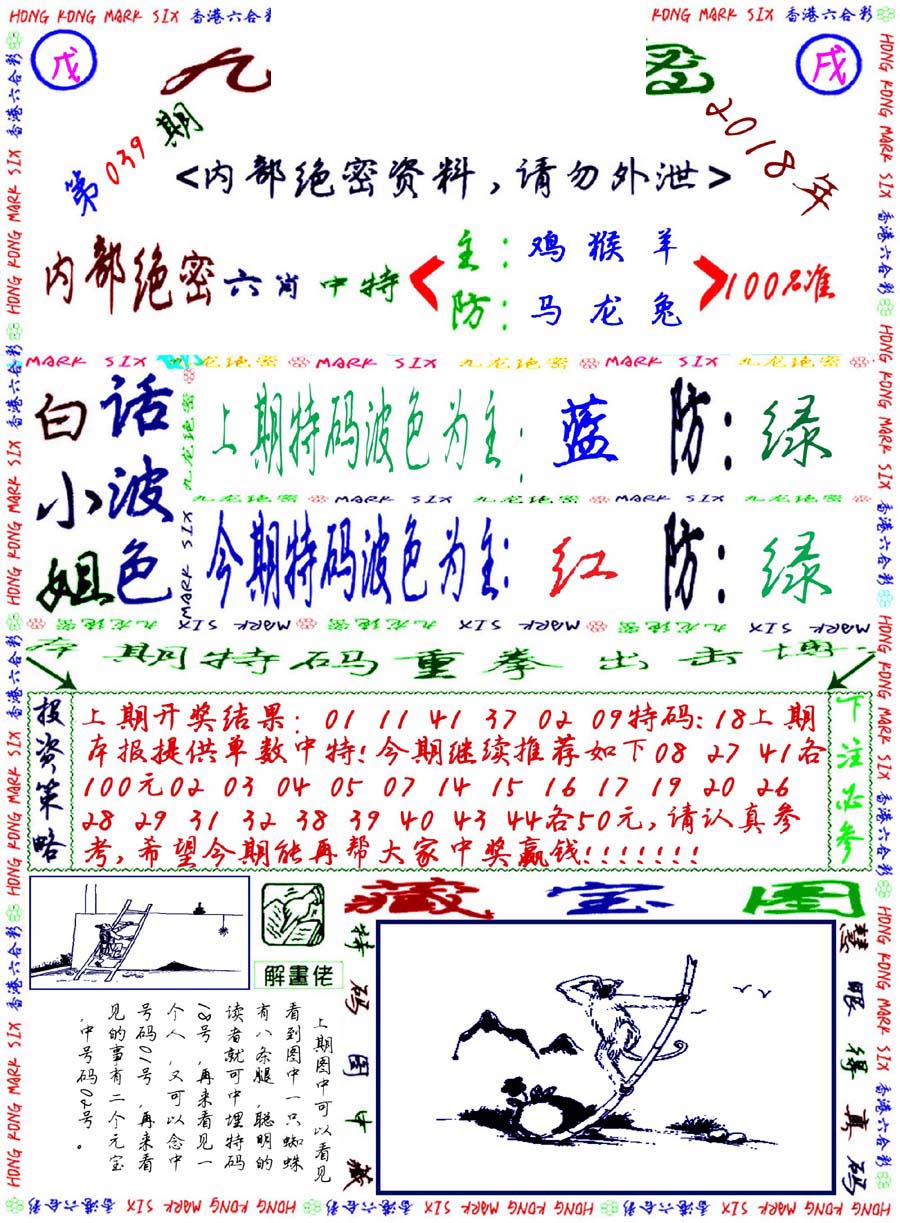 HONG KONG MARK SIX 香港六合彩
KONG MARK SIX 香港六合彩
戊
九
密
戌
第039期
2018年
<内部绝密资料,请勿外泄>
内部绝密六肖中特
主:鸡猴羊
防:马龙兔
100%准
MARK SIX 九龙绝密 MARK SIX 九龙绝密 MARK SIX 九龙绝密
白话
小波
姐色
上期特码波色为主:蓝 防:绿
九龙绝密 MARK SIX 九龙绝密 MARK SIX 九龙绝密
今期特码波色为主:红 防:绿
九龙绝密 MARK SIX 九龙绝密 MARK SIX 九龙绝密 MARK SIX
本期特码重拳出击博
投资策略
上期开奖结果:01 11 41 37 02 09特码:18上期
本报提供单数中特!今期继续推荐如下08 27 41各
100元02 03 04 05 07 14 15 16 17 19 20 26
28 29 31 32 38 39 40 43 44各50元,请认真参
考,希望今期能再帮大家中奖赢钱!!!!!!!
下注必参
解畫佬
藏宝图
特码图中藏
慧眼得真码
上期图中可以看见
看到图中一只蜘蛛
有八条腿,聪明的
读者就可中埋特码
18号,再来看见一
个人,又可以念中
号码01号,再来看
见的事有二个元宝
,中号码02号。
HONG KONG MARK SIX 香港六合彩